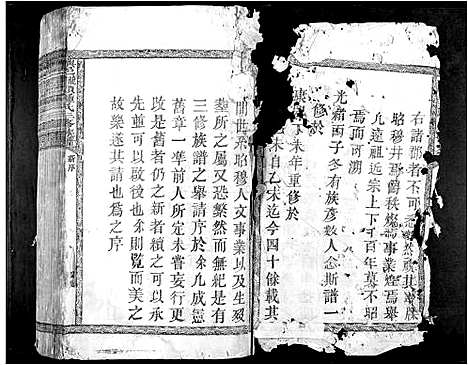 右諸部者不可
昭穆井焉爵秩燦焉事業煌焉舉
凡遠祖近宗上下千百年莫不昭
焉而列焉
光緒丙子冬有族彥數人念斯譜一
修於
未年重修於
未自乙未迄今四十餘載其
間世系昭穆人文事業以及生歿
塟所之屬又恐繁然而無紀是有
三修族譜之舉請序於余凡成憲
舊章一準前人所定未嘗妄行更
改是舊者仍之新者續之可以承
先並可以啓後也余則覽而美之
故樂遂其請也爲之序